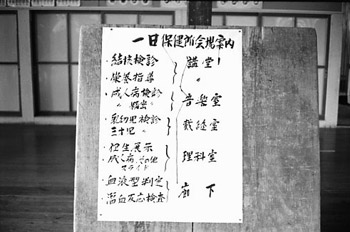 一日保健所会場案内
・結核検診 講堂
・栄養指導 〃
・成人病検診
〃 音楽室
・乳幼児検診 裁縫室
三十児 〃
・衛生展示 理科室
・成人病、その他
スライド
・血液型判定 廊下
・検査